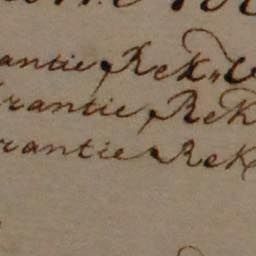 antie Rek„
rantie Rek
rantie Rek